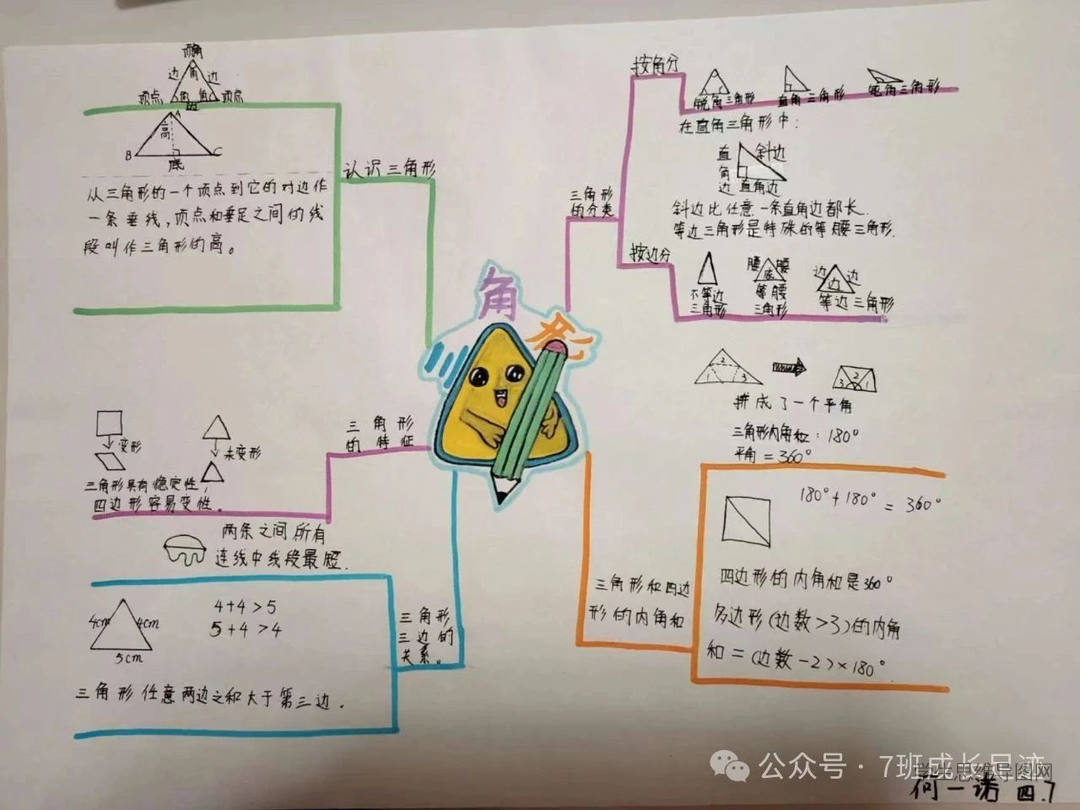 顶角
边 角 边
顶点 角 角 顶点
边
A
高
B C
底
从三角形的一个顶点到它的对边作
一条垂线，顶点和垂足之间的线
段叫作三角形的高。
认识三角形
按角分
锐角三角形 直角三角形 钝角三角形
在直角三角形中：
直角边 斜边
直角边
斜边比任意一条直角边都长.
等边三角形是特殊的等腰三角形.
三角形
的分类
按边分
不等边
三角形
腰 腰
底
等腰
三角形
边 边
边
等边三角形
角
形
三角形
的特征
变形
未变形
三角形具有稳定性，
四边形容易变性。
1 2 3
3 2 1
拼成了一个平角
三角形内角和：180°
平角=360°
180°+180°=360°
四边形的内角和是360°
多边形(边数>3)的内角
和=(边数-2)×180°
三角形和四边
形的内角和
两条之间所有
连线中线段最短.
4cm 4cm
5cm
4+4>5
5+4>4
三角形任意两边之和大于第三边.
三角形
三边的
关系。
公众号·7班成长足迹
学生思维导图网
何一诺 四.7